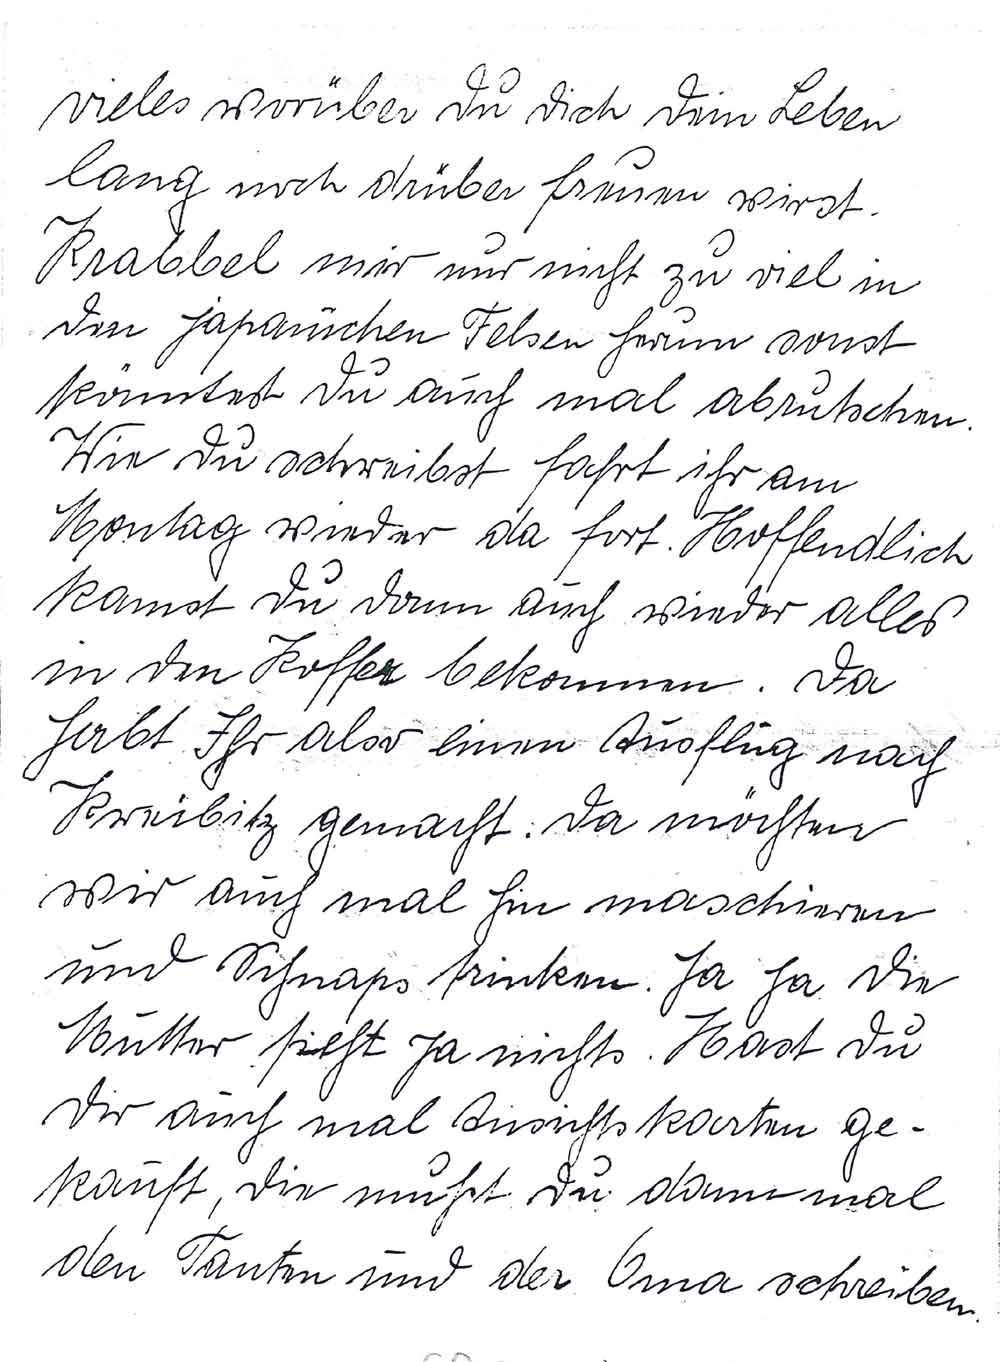 vieles worüber Du Dich Dein Leben
lang noch drüber freuen wirst.
Krabbel mir nur nicht zu viel in
den japanischen Felsen herum sonst
könntest Du auch mal abrutschen.
Wie Du schreibst fahrt ihr am
Montag wieder da fort. Hoffendlich
kannst Du dann auch wieder alles
in den Koffer bekommen. Da
habt Ihr also einen Ausflug nach
Kreibitz gemacht. Da möchten
wir auch mal hin maschieren
und Schnaps trinken. Ja Ja die
Mutter sieht ja nichts. Hast Du
Dir auch mal Ansichtskarten ge-
kauft, die mußt Du dann mal
den Tanten und der Oma schreiben.